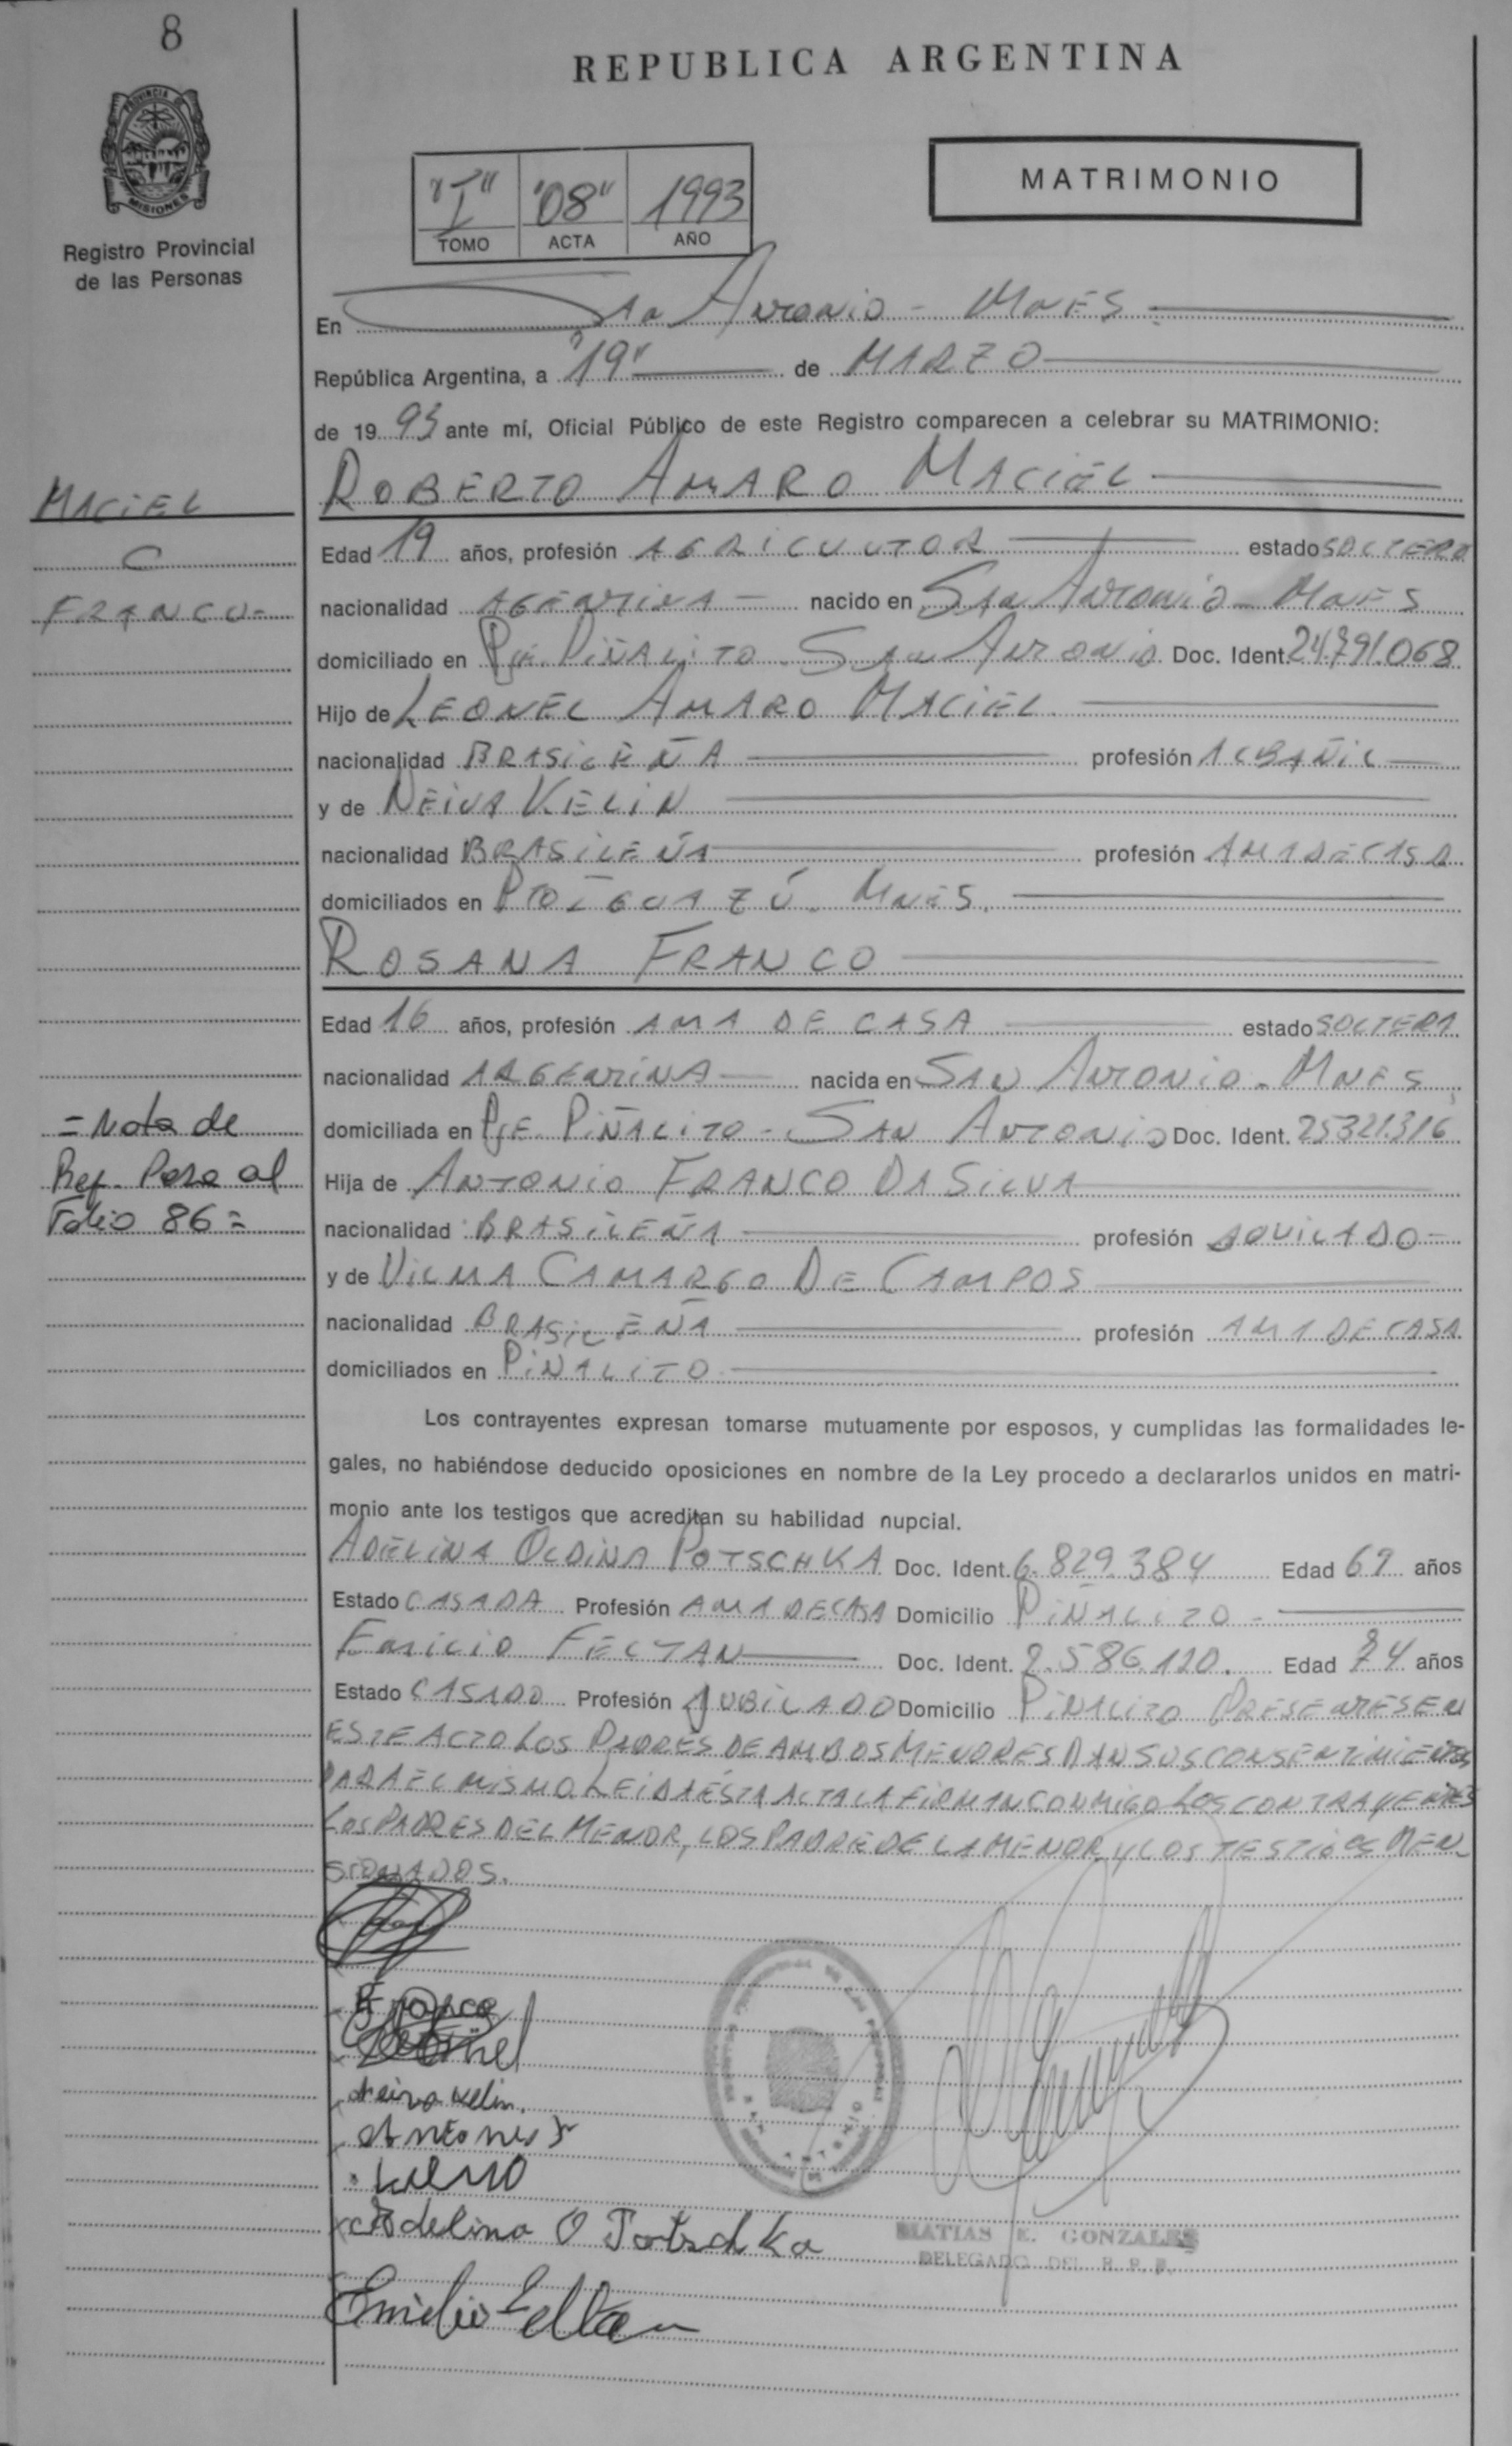 8
REPUBLICA ARGENTINA
PROVINCIA DE
MISIONES
Registro Provincial
de las Personas
"I" "08" 1993
TOMO ACTA AÑO
MATRIMONIO
En San Antonio - Mnes.
República Argentina, a "19" de MARZO
de 19 93 ante mí, Oficial Público de este Registro comparecen a celebrar su MATRIMONIO:
MACIEL
C
FRANCO=
ROBERTO AMARO MACIEL
Edad 19 años, profesión AGRICULTOR estado SOLTERO
nacionalidad nacido en San Antonio - Mnes
domiciliado en Pje. PIÑALITO - San Antonio Doc. Ident. 24.791.068
Hijo de LEONEL AMARO MACIEL
nacionalidad BRASILEÑA profesión ALBAÑIL
y de NEIVA KELIN
nacionalidad BRASILEÑA profesión AMA DE CASA
domiciliados en PTO IGUAZÚ - Mnes.
ROSANA FRANCO
Edad 16 años, profesión AMA DE CASA estado SOLTERA
nacionalidad ARGENTINA nacida en SAN ANTONIO - Mnes
domiciliada en Pje. PIÑALITO - SAN ANTONIO Doc. Ident. 25321.316
Hija de ANTONIO FRANCO DA SILVA
nacionalidad BRASILEÑA profesión
y de VILMA CAMARGO DE CAMPOS
nacionalidad BRASILEÑA profesión AMA DE CASA
domiciliados en PIÑALITO
= Nota de
Ref. Pasa al
Folio 86 =
Los contrayentes expresan tomarse mutuamente por esposos, y cumplidas las formalidades le-
gales, no habiéndose deducido oposiciones en nombre de la Ley procedo a declararlos unidos en matri-
monio ante los testigos que acreditan su habilidad nupcial.
ADELINA OLDINA POTSCHKA Doc. Ident. 6.829.384 Edad años
Estado CASADA Profesión AMA DE CASA Domicilio PIÑALITO -
FELTAN Doc. Ident. 2.586.120. Edad 74 años
Estado CASADO Profesión JUBILADO Domicilio PIÑALITO PRESENTES EN
ESTE ACTO LOS PADRES DE AMBOS MENORES DAN SUS CONSENTIMIENTOS
PARA EL MISMO. LEIDA ESTA ACTA LA FIRMAN CONMIGO LOS CONTRAYENTES
LOS PADRES DEL MENOR, LOS PADRE DE LA MENOR Y LOS TESTIGOS MEN-
SIONADOS.
Franco
Neiva Kelin.
Antonio F
Adelina O Potschka
Emilio Feltan
MATIAS E. GONZALES
DELEGADO DEL R.P.P.